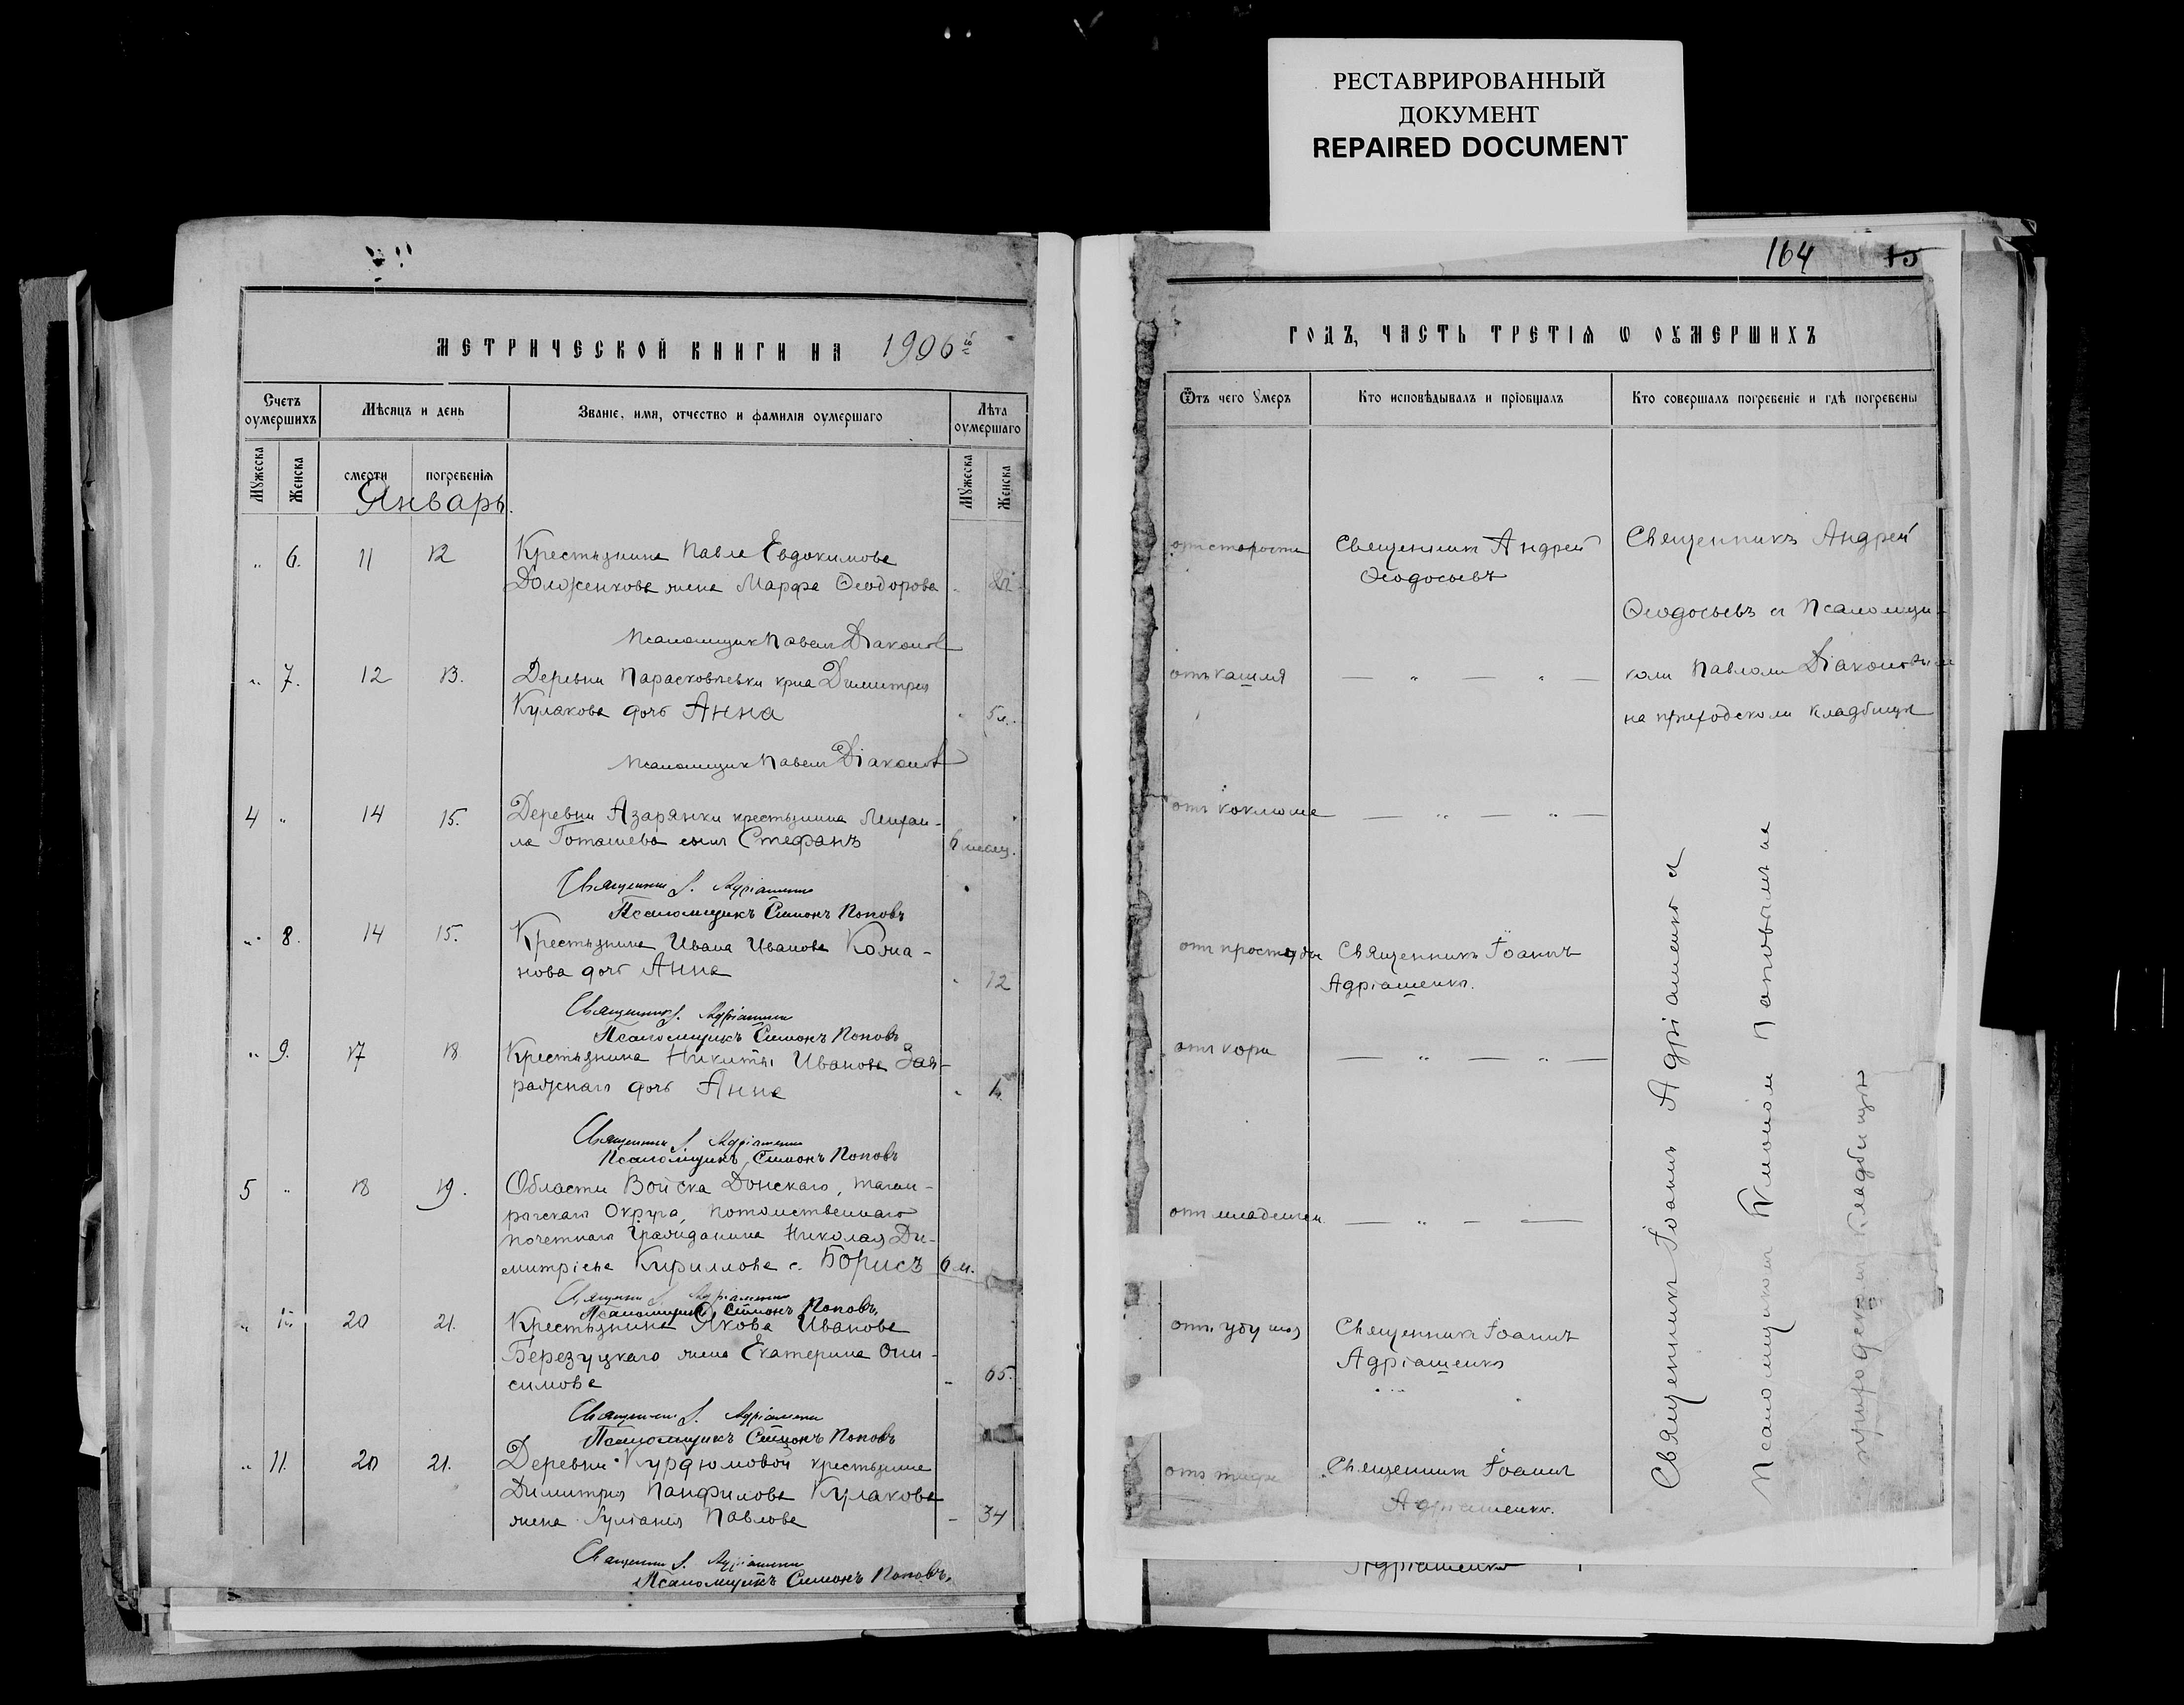 РЕСТАВРИРОВАННЫЙ
ДОКУМЕНТ
REPAIRED DOCUMENT
164 15
МЕТРИЧЕСКОЙ КНИГИ НА 1906
Счетъ оумершихъ
Мѣсяцъ и день
Званіе, имя, отчество и фамилія оумершаго
Лѣта оумершаго
Мꙋжеска
Женска
смерти
погребенія
Мꙋжеска
Женска
Январь.
„ 6. 11 12 Крестьянина Павла Евдокимова
Долженкова жена Марфа Ѳеодорова
Псаломщикъ Павелъ Діаконов
„ 7. 12 13. Деревни Парасковіевки кр-на Димитрія
Кулакова дочь Анна 5 л.
Псаломщикъ Павелъ Діаконов
4 „ 14 15. Деревни Азарянки крестьянина
ла сынъ Стефанъ 6 месяц.
Священникъ І. Адріашенко
Псаломщикъ Симонъ Поповъ
„ 8. 14 15. Крестьянина Ивана Иванова
нова дочь Анна 12
Священникъ І. Адріашенко
Псаломщикъ Симонъ Поповъ
„ 9. 17 18 Крестьянина Никиты Иванова
дочь Анна
Священникъ І. Адріашенко
Псаломщикъ Симонъ Поповъ
5 „ 18 19. Области Войска Донскаго, Таган-
рогскаго Округа, потомственнаго
почетнаго Гражданина Николая Ди-
митріева Кириллова с. Борисъ 6 м.
Священникъ І. Адріашенко
Псаломщикъ Симонъ Поповъ
„ 20 21. Крестьянина Якова Иванова
Березуцкаго жена Екатерина Они-
симова 65.
Священникъ І. Адріашенко
Псаломщикъ Симонъ Поповъ
„ 11. 20 21. Деревни Курдюмовой крестьянина
Димитрія Панфилова Кулакова
жена Іуліанія Павлова 34
Священникъ І. Адріашенко
Псаломщикъ Симонъ Поповъ.
ГОДЪ, ЧАСТЬ ТРЕТІЯ Ѡ ОУМЕРШИХЪ
Ѿтъ чего ꙋмеръ
Кто исповѣдывалъ и пріобщалъ
Кто совершалъ погребеніе и гдѣ погребены
отъ старости Священникъ Андрей Священникъ Андрей
Ѳеодосьевъ
Ѳеодосьевъ съ псаломщи-
отъ кашля — „ — „ — комъ Павломъ Діаконовым
на приходскомъ кладбищѣ
отъ коклюша — „ — „ —
отъ простуды Священникъ Іоаннъ
Адріашенко.
отъ кори — „ — „ —
отъ младенч. — „ — —
отъ Священникъ Іоаннъ
Адріашенко
отъ Священникъ Іоаннъ
Адріашенко.
Адріашенко
Священникъ Іоаннъ Адріашенко съ
Псаломщикомъ Поповымъ на
приходскомъ кладбищѣ